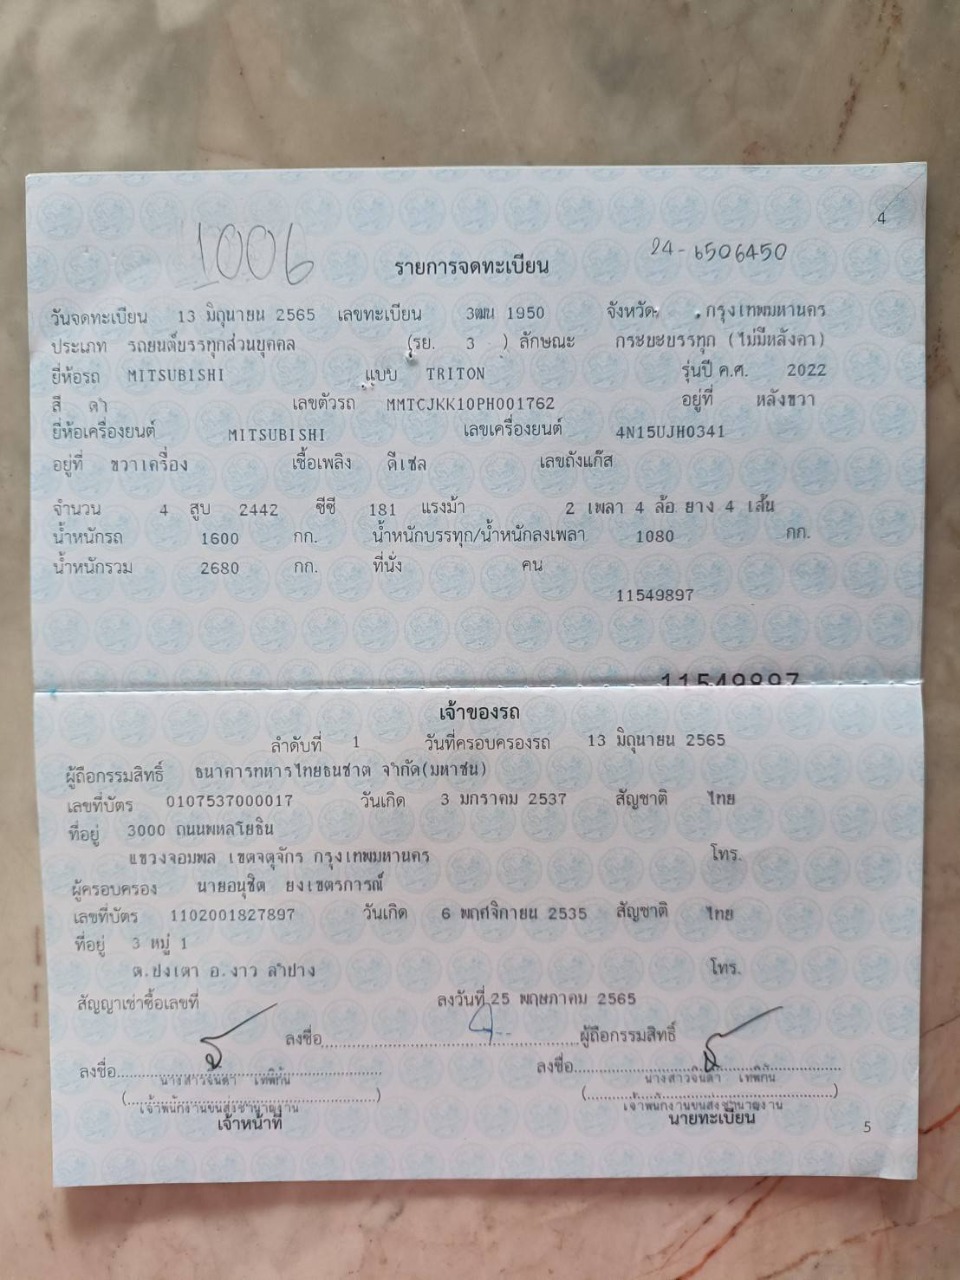 4
1006
24-6506450
รายการจดทะเบียน
วันจดทะเบียน 13 มิถุนายน 2565 เลขทะเบียน 3ฒน 1950 จังหวัด กรุงเทพมหานคร
ประเภท รถยนต์บรรทุกส่วนบุคคล (รย. 3 ) ลักษณะ กระบะบรรทุก (ไม่มีหลังคา)
ยี่ห้อรถ MITSUBISHI แบบ TRITON รุ่นปี ค.ศ. 2022
สี ดำ เลขตัวรถ MMTCJKK10PH001762 อยู่ที่ หลังขวา
ยี่ห้อเครื่องยนต์ MITSUBISHI เลขเครื่องยนต์ 4N15UJH0341
อยู่ที่ ขวาเครื่อง เชื้อเพลิง ดีเซล เลขถังแก๊ส
จำนวน 4 สูบ 2442 ซีซี 181 แรงม้า 2 เพลา 4 ล้อ ยาง 4 เส้น
น้ำหนักรถ 1600 กก. น้ำหนักบรรทุก/น้ำหนักลงเพลา 1080 กก.
น้ำหนักรวม 2680 กก. ที่นั่ง คน
11549897
11549897
เจ้าของรถ
ลำดับที่ 1 วันที่ครอบครองรถ 13 มิถุนายน 2565
ผู้ถือกรรมสิทธิ์ ธนาคารทหารไทยธนชาต จำกัด(มหาชน)
เลขที่บัตร 0107537000017 วันเกิด 3 มกราคม 2537 สัญชาติ ไทย
ที่อยู่ 3000 ถนนพหลโยธิน
แขวงจอมพล เขตจตุจักร กรุงเทพมหานคร โทร.
ผู้ครอบครอง นายอนุชิต ยงเขตรการณ์
เลขที่บัตร 1102001827897 วันเกิด 6 พฤศจิกายน 2535 สัญชาติ ไทย
ที่อยู่ 3 หมู่ 1
ต.ปงเตา อ.งาว ลำปาง โทร.
สัญญาเช่าซื้อเลขที่ ลงวันที่ 25 พฤษภาคม 2565
ลงชื่อ ผู้ถือกรรมสิทธิ์
ลงชื่อ ลงชื่อ
นางสาวจินดา เทพิกัน นางสาวจินดา เทพิกัน
เจ้าพนักงานขนส่งชำนาญงาน เจ้าพนักงานขนส่งชำนาญงาน
เจ้าหน้าที่ นายทะเบียน
5